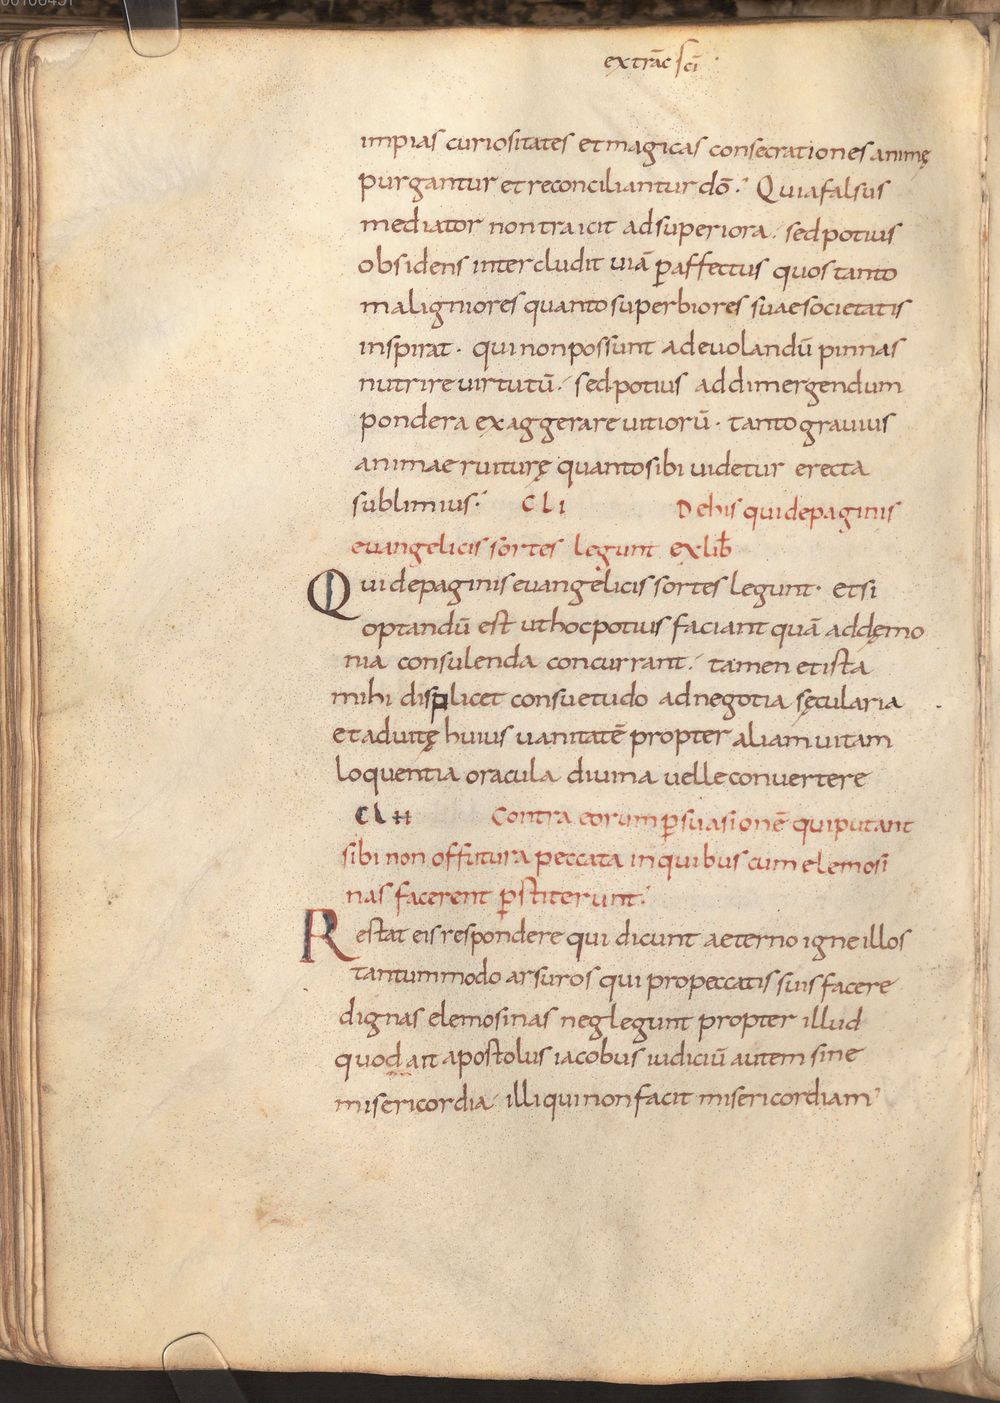 extrāc scī
impias curiositates et magicas consecrationes animę
purgantur et reconciliantur dō. Quia falsus
mediator non traicit ad superiora. sed potius
obsidens intercludit uiā ꝑ affectus quos tanto
maligniores quanto superbiores suae societatis
inspirat. qui non possunt ad euolandū pinnas
nutrire uirtutū. sed potius ad dimergendum
pondera exaggerare uitiorū. tanto grauius
animae ruiturę quanto sibi uidetur erecta
sublimius. CLI De his qui de paginis
euangelicis sortes legunt ex lib̄
Qui de paginis euangelicis sortes legunt. etsi
optandū est ut hoc potius faciant quā ad dęmo
nia consulenda concurrant. tamen et ista
mihi displicet consuetudo ad negotia sęcularia
et ad uitę huius uanitatē propter aliam uitam
loquentia oracula diuina uelle convertere
CLII Contra eorum ꝑsuasionē qui putant
sibi non offutura peccata in quibus cum elemosi
nas facerent ꝑstiterunt.
Restat eis respondere qui dicunt aeterno igne illos
tantummodo arsuros qui pro peccatis suis facere
dignas elemosinas neglegunt propter illud
quod ait apostolus iacobus iudiciū autem sine
misericordia illi qui non facit misericordiam